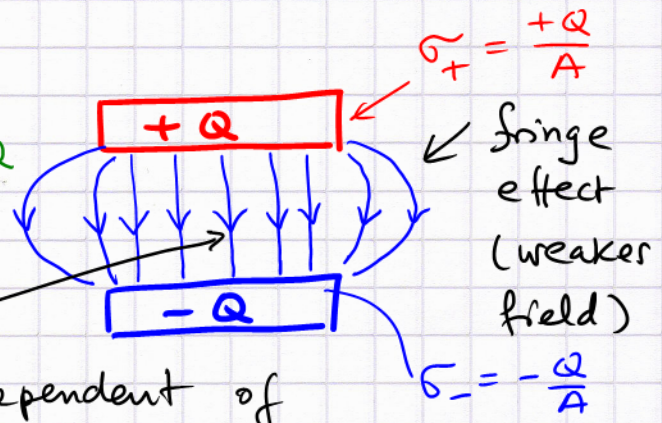 σ₊ = +Q/A
+ Q
fringe
effect
(weaker
field)
- Q
σ₋ = - Q/A
of